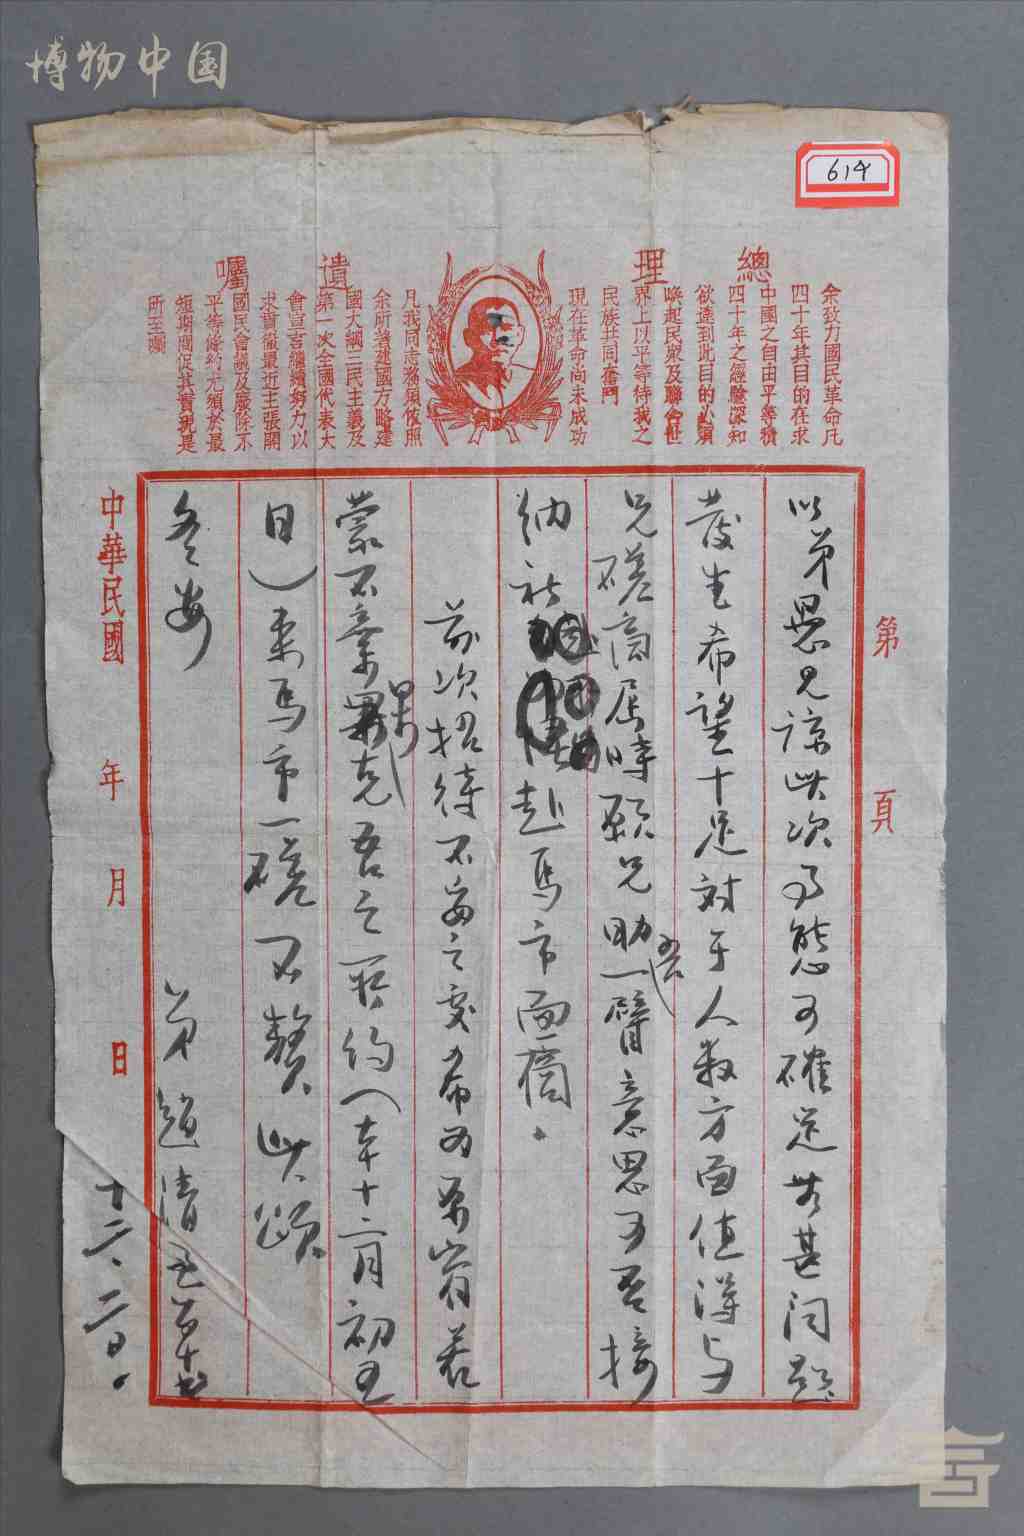 博物中国
614
總理遺囑
余致力國民革命凡
四十年其目的在求
中國之自由平等積
四十年之經驗深知
欲達到此目的必須
喚起民眾及聯合世
界上以平等待我之
民族共同奮鬥
現在革命尚未成功
凡我同志務須依照
余所著建國方略建
國大綱三民主義及
第一次全國代表大
會宣言繼續努力以
求貫徹最近主張開
國民會議及廢除不
平等條約尤須於最
短期間促其實現是
所至囑
第 頁
以弟愚見諒此次事態可確定無甚問題
發生希望十足對于人数方面值得与
兄磋商屆時願兄助吾一臂意思可否接
納祈 赴馬市面商。
前次招待不妥之處希为原宥若
蒙不棄畧克吾之所約（本十二月初五
日）来馬市一磋不贅此頌
冬安
弟趙清
十二、二日、
中華民國 年 月 日